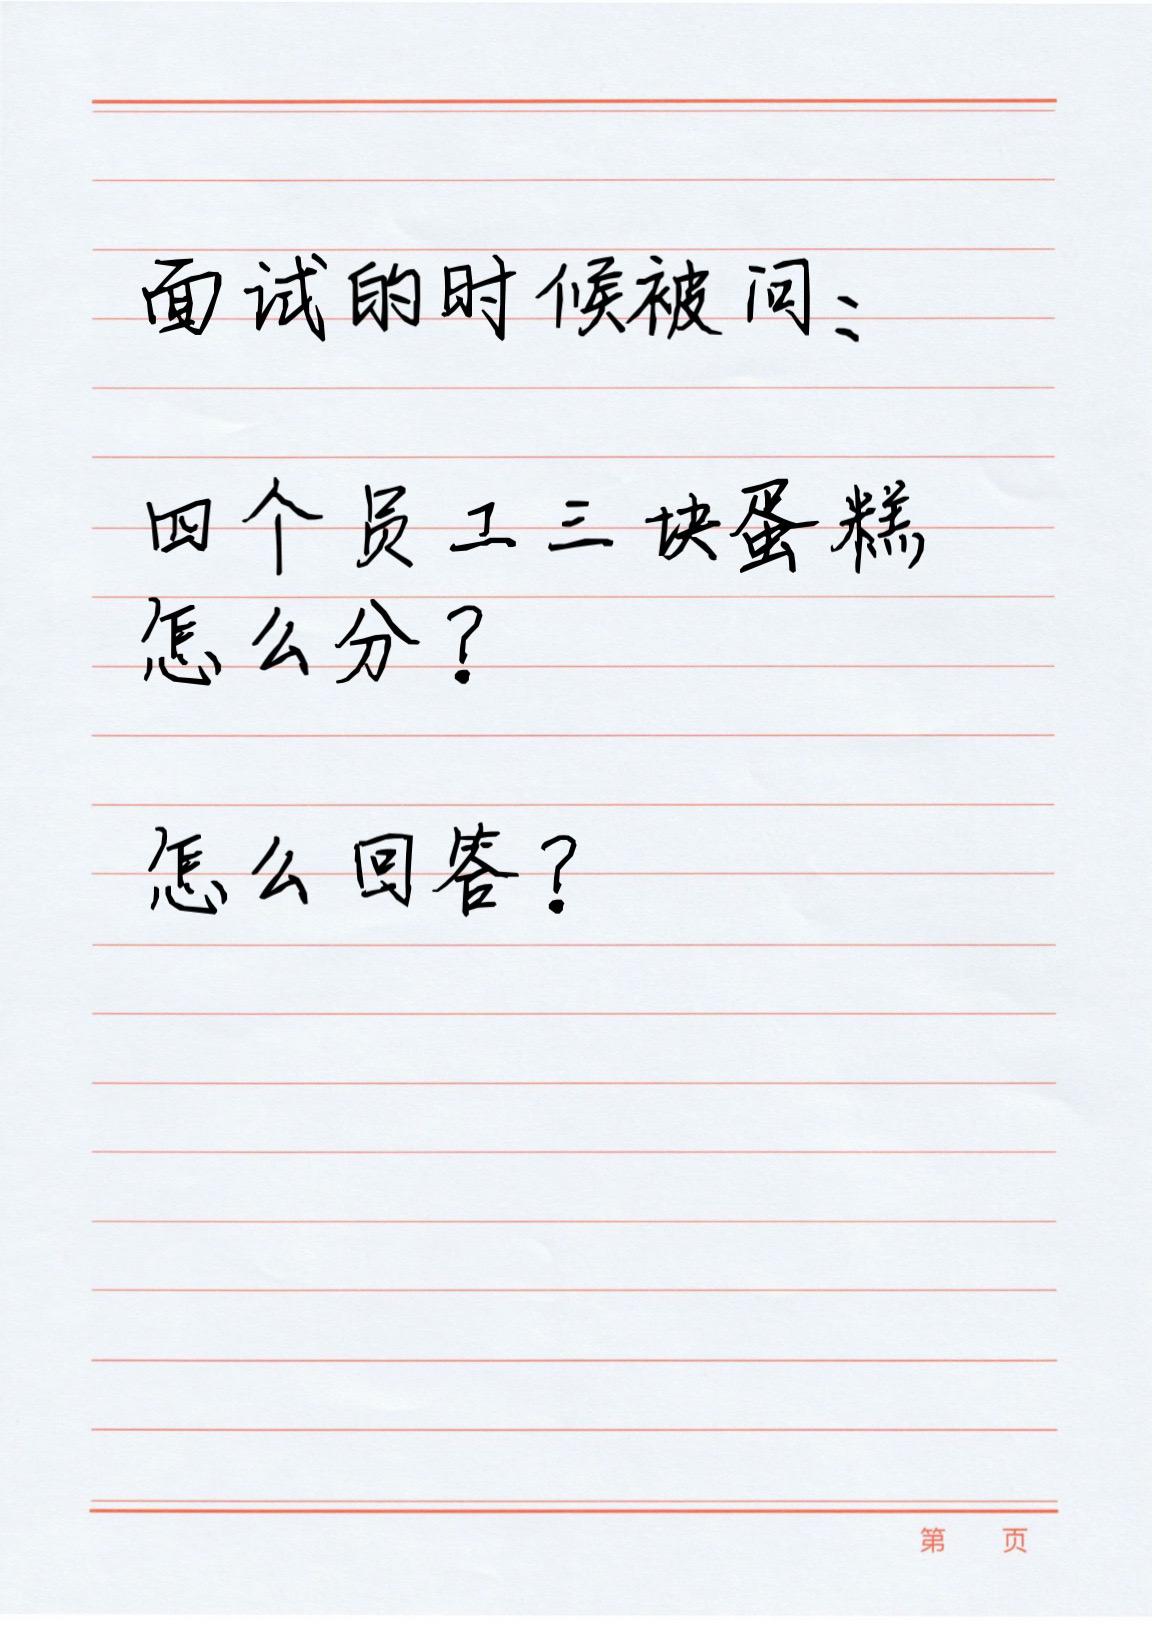 面试的时候被问：
四个员工三块蛋糕
怎么分？
怎么回答？
第 页